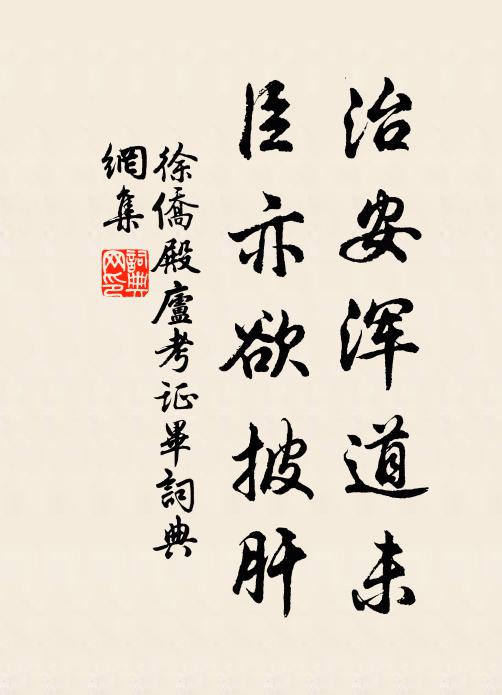 治安浑道未
臣亦欲披肝
徐僑殿廬考证畢詞典
網集
詞典网印